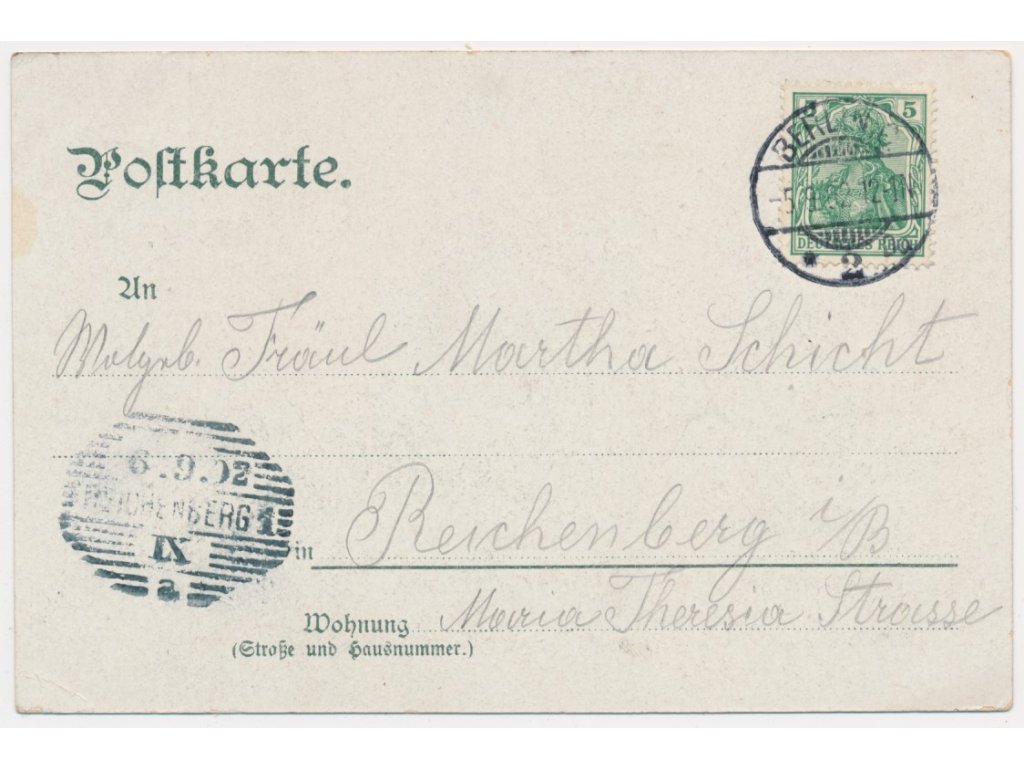 Postkarte.
5
BERLIN
-5.9.02 12-1N
* 2
DEUTSCHES REICH
An
Wolgeb. Fräul Martha Schicht
6.9.02
REICHENBERG 1
IX
a
in Reichenberg i/B
Wohnung Maria Theresia Strasse
(Straße und Hausnummer.)